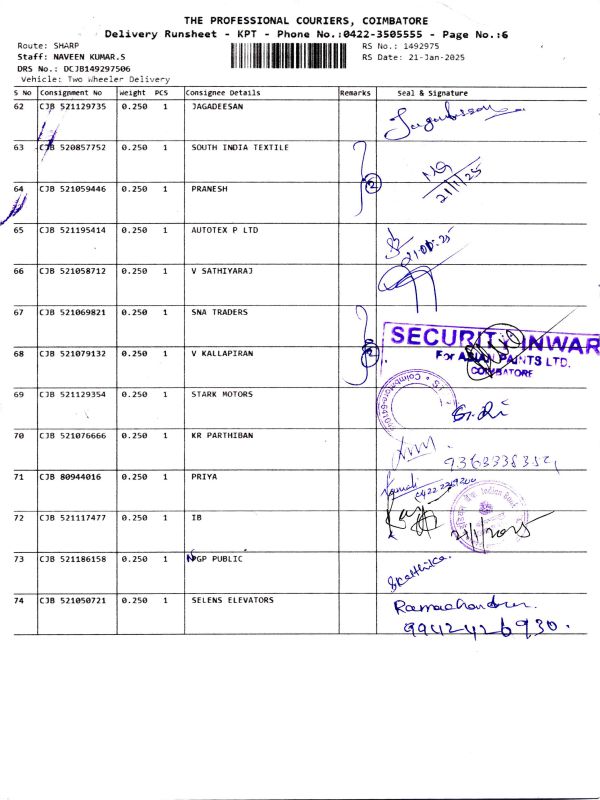 THE PROFESSIONAL COURIERS, COIMBATORE
Delivery Runsheet - KPT - Phone No.:0422-3505555 - Page No.:6
Route: SHARP
RS No.: 1492975
Staff: NAVEEN KUMAR.S
RS Date: 21-Jan-2025
DRS No.: DCJB149297506
Vehicle: Two Wheeler Delivery
S No Consignment No Weight PCS Consignee Details Remarks Seal & Signature
62 CJB 521129735 0.250 1 JAGADEESAN
63 CJB 520857752 0.250 1 SOUTH INDIA TEXTILE
21/1/25
64 CJB 521059446 0.250 1 PRANESH
2
65 CJB 521195414 0.250 1 AUTOTEX P LTD
66 CJB 521058712 0.250 1 V SATHIYARAJ
67 CJB 521069821 0.250 1 SNA TRADERS
SECURITY INWAR
68 CJB 521079132 0.250 1 V KALLAPIRAN
2
For ASIAN PAINTS LTD.
COIMBATORE
69 CJB 521129354 0.250 1 STARK MOTORS
70 CJB 521076666 0.250 1 KR PARTHIBAN
71 CJB 80944016 0.250 1 PRIYA
72 CJB 521117477 0.250 1 IB
Indian Bank
21/1/2025
73 CJB 521186158 0.250 1 PGP PUBLIC
74 CJB 521050721 0.250 1 SELENS ELEVATORS
Ramachandran.
9942426930.